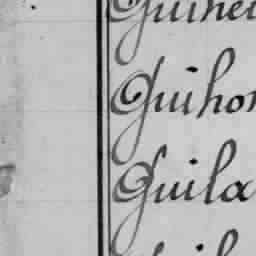 Guihe
Guihon
Guila